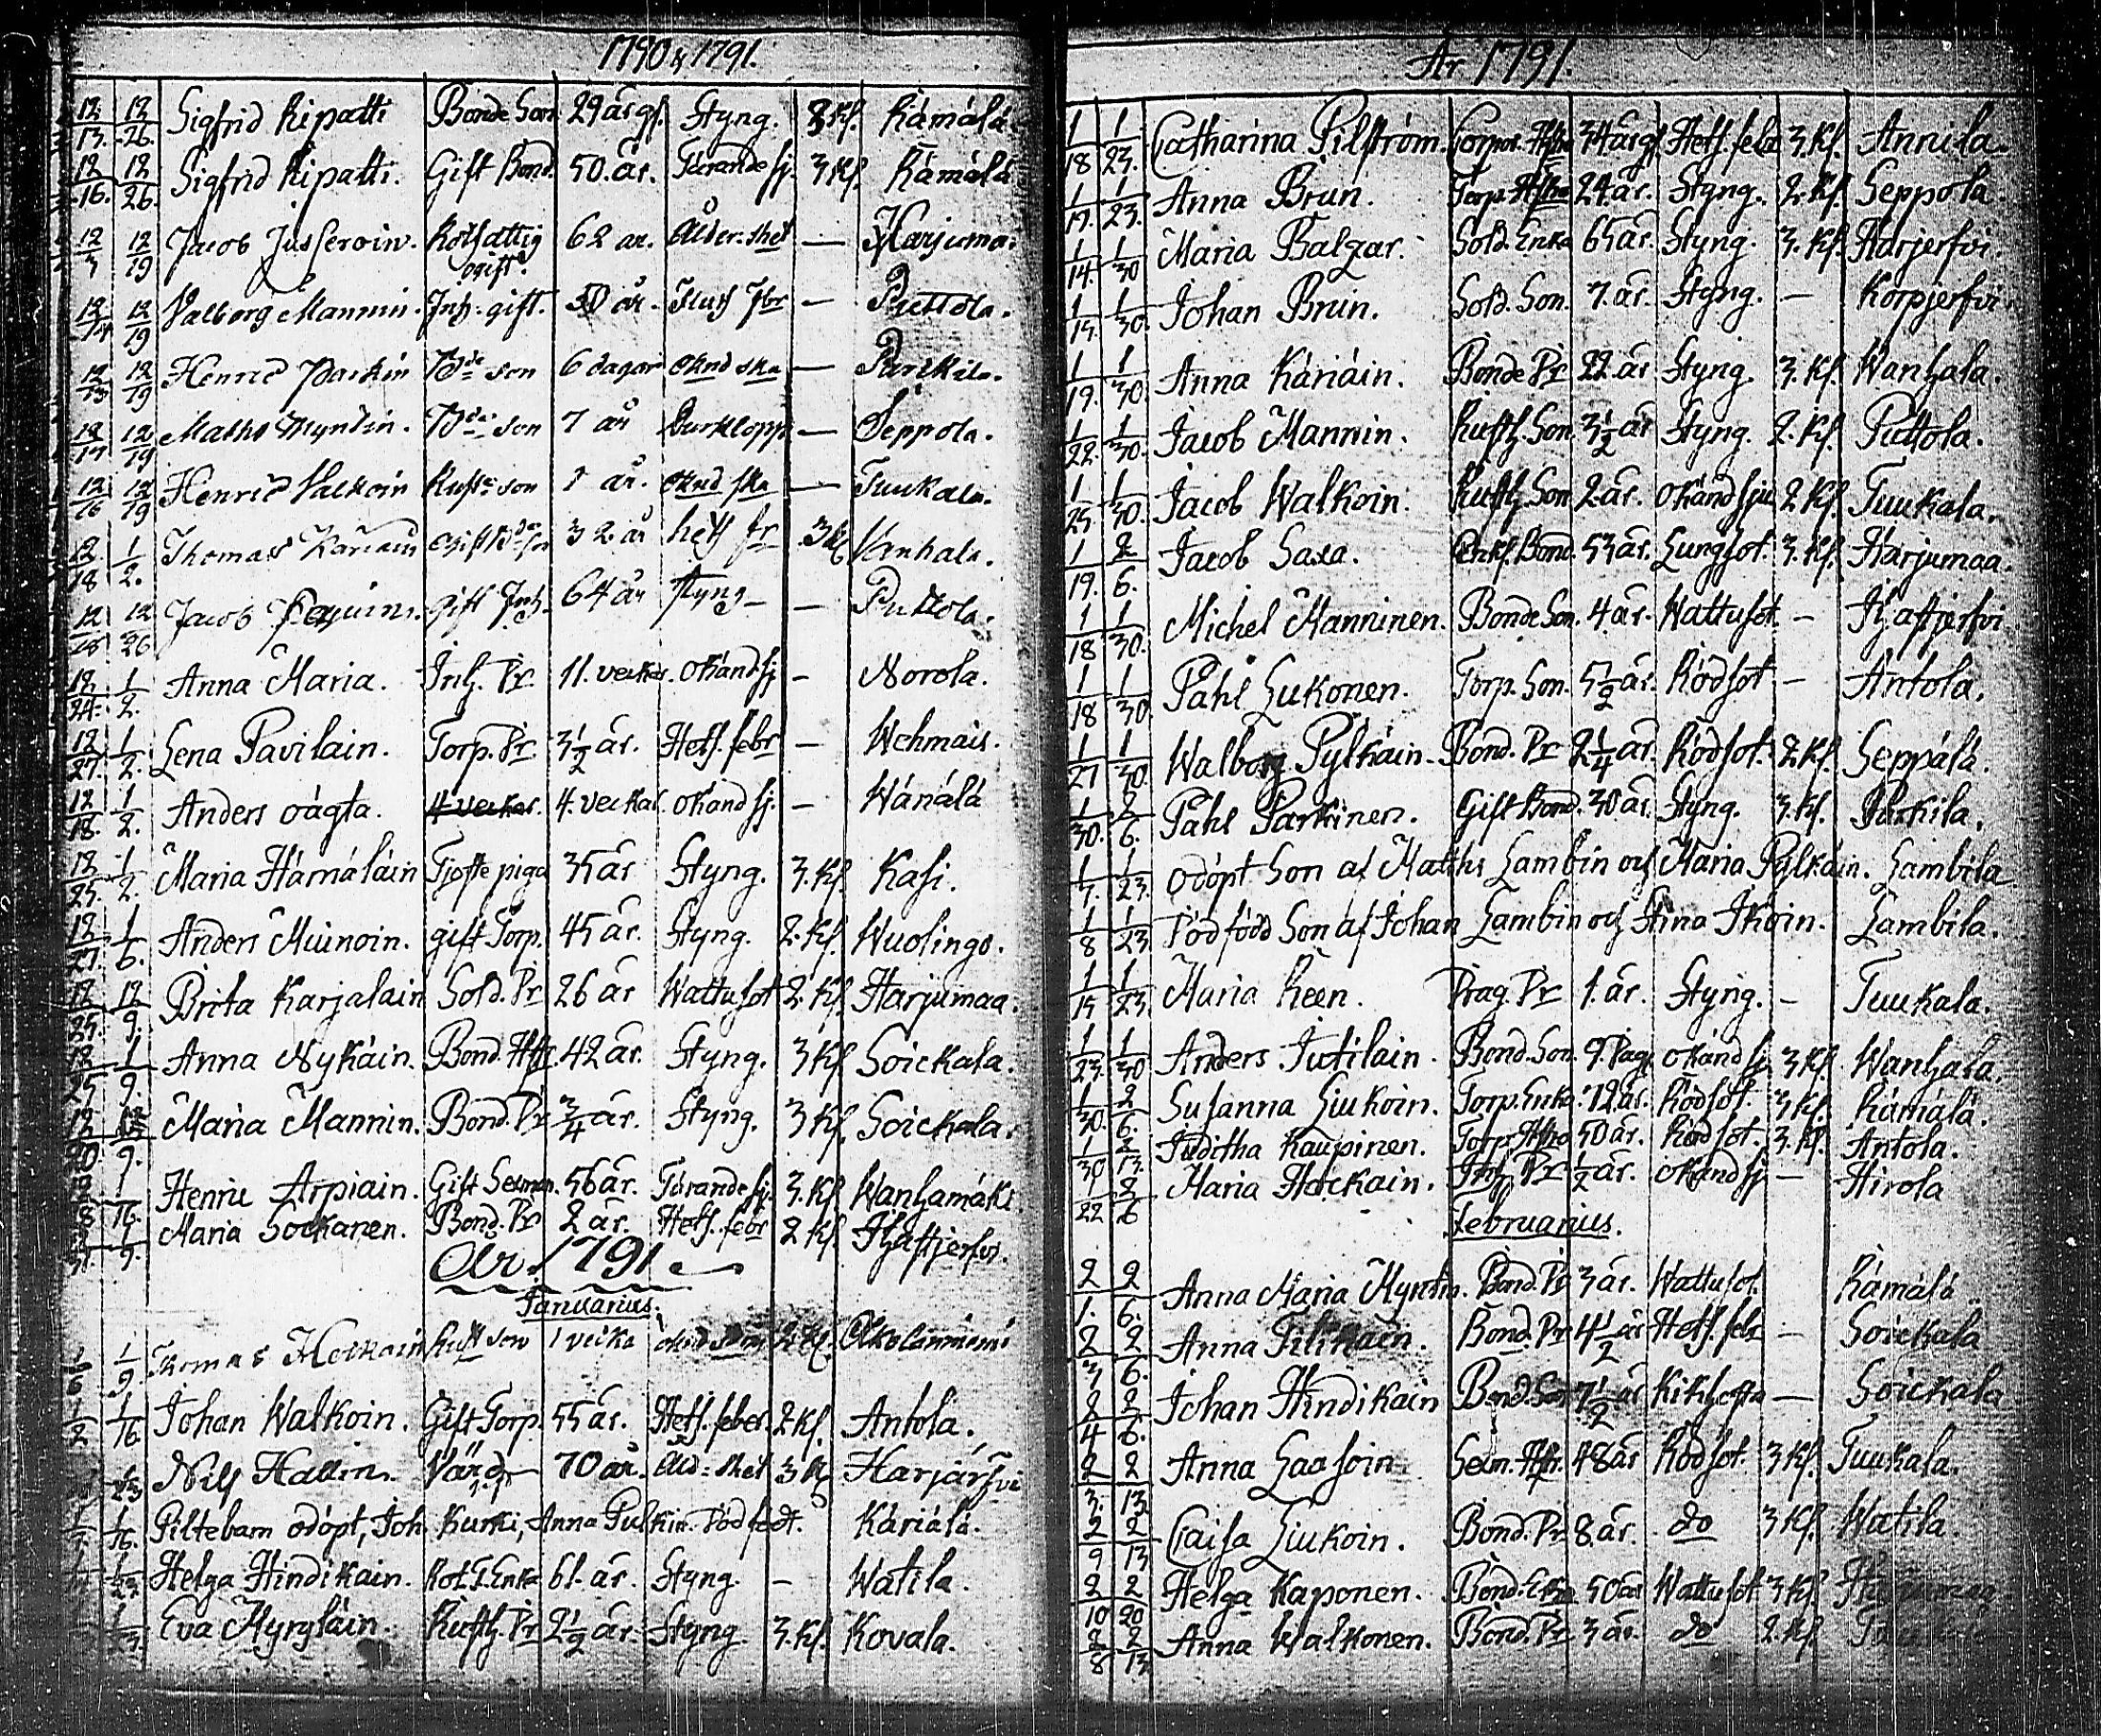 1790 & 1791.
12/13. 12/26. Sigfrid Ripatti Bonde Son 29 år gl. Styng. 3 Kl. Kämälä
12/16. 12/26. Sigfrid Ripatti. Gift Bond. 50. år. Tärande sj. 3 Kl. Kämälä
12/9 12/19 Jacob Jusseroin. Rotfattig ogift. 62 år. Ålder:het — Harjuma.
12/19 Valborg Mannin. Inh: gift. 50 år. — Puttola.
12/13 12/19 Henric Parkin Bde son 6 dagar oknd ska — Parikila.
12/17 12/19 Maths Myntin. Bde son 7 år — Seppola.
12/16 12/19 Henric Valkoin Rust: son 1 år. oknd ska — Tuukala.
12/18 1/2. Thomas Käriäin gift Bde son 32 år hets fr 3 Kl Vanhala.
12/25 12/26 Jacob gift Inh. 64 år styng — Puttola.
12/24. 1/2. Anna Maria. Inh. Pr. 11. veckor. okänd sj — Norola.
12/27. 1/2. Lena Pavilain. Torp. Pr 3 1/2 år. Hets. febr — Wehmais.
12/18. 1/2. Anders oägta. 4 veckor. 4. veckor. okänd sj. — Wänälä
12/25. 1/2. Maria Hämäläin Tjoste piga 35 år Styng. 3. Kl. Kasi.
12/27. 1/6. Anders Muinoin. gift Torp. 45 år. Styng. 2. Kl. Wuolingo.
12/25. 12/9. Brita Karjalain Sold. Pr 26 år Wattusot 2. Kl. Harjumaa.
12/25 1/9. Anna Nykäin. Bond. Hstr. 42 år. Styng. 3 Kl Soickala.
12/20. 9. Maria Mannin. Bond. Pr 3/4 år. Styng. 3 Kl. Soickala.
1/16. Henric Arpiain. Gift Soldn. 56 år. Tärande sj. 3. Kl. Wanhamäki.
1/9. Maria Sockanen. Bond. Pr 2 år. Hets. febr 2 Kl. Hjastjerfvi.
År 1791
Januarius.
1/6 1/9 Thomas Heickain Rust son 1 vecka 2. Kl.
1/2 1/16 Johan Walkoin. Gift Torp. 55 år. Hets. feber. 2 Kl. Antola.
1/23 Nils Hallin. 70 år. Åld:het 3 Kl Harjärfvi
1/7. 1/16. Piltebarn odöpt, Joh. Kurki, Anna Pulkin. Död född. Käriälä.
1/23. Helga Hindikain. Rot. F. Enka 61. år. Styng. — Watila.
1/23. Eva Hyryläin. Rusth. Pr 2 1/2 år. Styng. 3. Kl. Kovala.
År 1791.
1/18 1/23. Catharina Pilström. Corpor. Hstro 34 år gl. Hets. febr 3. Kl. Annila.
1/17. 1/23. Anna Brun. Torp. Hstro 24. år. Styng. 2. Kl. Seppola.
1/14. 1/30 Maria Balzar. Sold. Enka 65 år. Styng. 3. Kl. Harjerfvi.
1/15. 1/30. Johan Brun. Sold. Son. 7. år. Styng. — Korpjerfvi
1/19. 1/30. Anna Käriäin. Bonde Pr 22. år Styng. 3. Kl. Wanhala.
1/22. 1/30. Jacob Mannin. Rusth. Son. 3 1/2 år Styng. 2. Kl. Puttola.
1/25. 1/30. Jacob Walkoin. Rusth. Son 2 år. okänd sju 2 Kl. Tuukala.
1/19. 2/6. Jacob Saxa. Enkl. Bond. 53 år. Lungsot. 3. Kl. Harjumaa.
1/18 1/30. Michel Manninen. Bonde Son. 4. år. Wattusot. — Hjastjerfvi
1/18 1/30. Påhl Liukonen. Torp. Son. 5 1/2 år. Rödsot — Antola.
1/27 1/30. Walborg Pylkäin. Bond. Pr 2 1/4 år. Rödsot. 2 Kl. Seppälä.
1/30. 2/6. Påhl Parkinen. Gift Bond. 30 år. Styng. 3. Kl. Purkila.
1/7. 1/23. odöpt Son af Maths Lambin och Maria Pylkäin. Lambila.
1/8 1/23. Dödfödd Son af Johan Lambin och Stina Ikoin. Lambila.
1/15 1/23. Maria Reen. Drag. Pr 1. år. Styng. — Tuukala.
1/23. 1/30 Anders Jutilain. Bond. Son. 9. Dag. okänd sj 3 Kl. Wanhala.
1/30. 2/6. Susanna Liukoin. Torp. Enka. 72 år. Rödsot. 3 Kl. Kämälä.
1/30 2/13. Juditha Kaupinen. Torp. Hstro 50 år. Rödsot. 3. Kl. Antola.
1/22 2/6 Maria Hackain. Inh. Pr 1/2 år. okänd sj — Hirola
Februarius.
2/1. 2/6. Anna Maria Myntin. Bond. Pr 3 år. Wattusot. Kämälä
2/3 2/6. Anna Pilikäin. Bond. Pr 4 1/2 år Hets. febr — Soickala
2/4 2/6. Johan Hindikain Bond. Son 7 1/2 år Kikhosta — Soickala
2/3. 2/13 Anna Laasoin. Soldn. Hstr. 48 år Rödsot. 3 Kl. Tuukala.
2/9 2/13 Caisa Liukoin. Bond. Pr 8. år. do 3 Kl. Watila
2/10 2/20 Helga Kaponen. Bond. Enka 50 år Wattusot 3 Kl. Harjumaa
2/8 2/13 Anna Walkonen. Bond. Pr. 3 år. do 2. Kl.